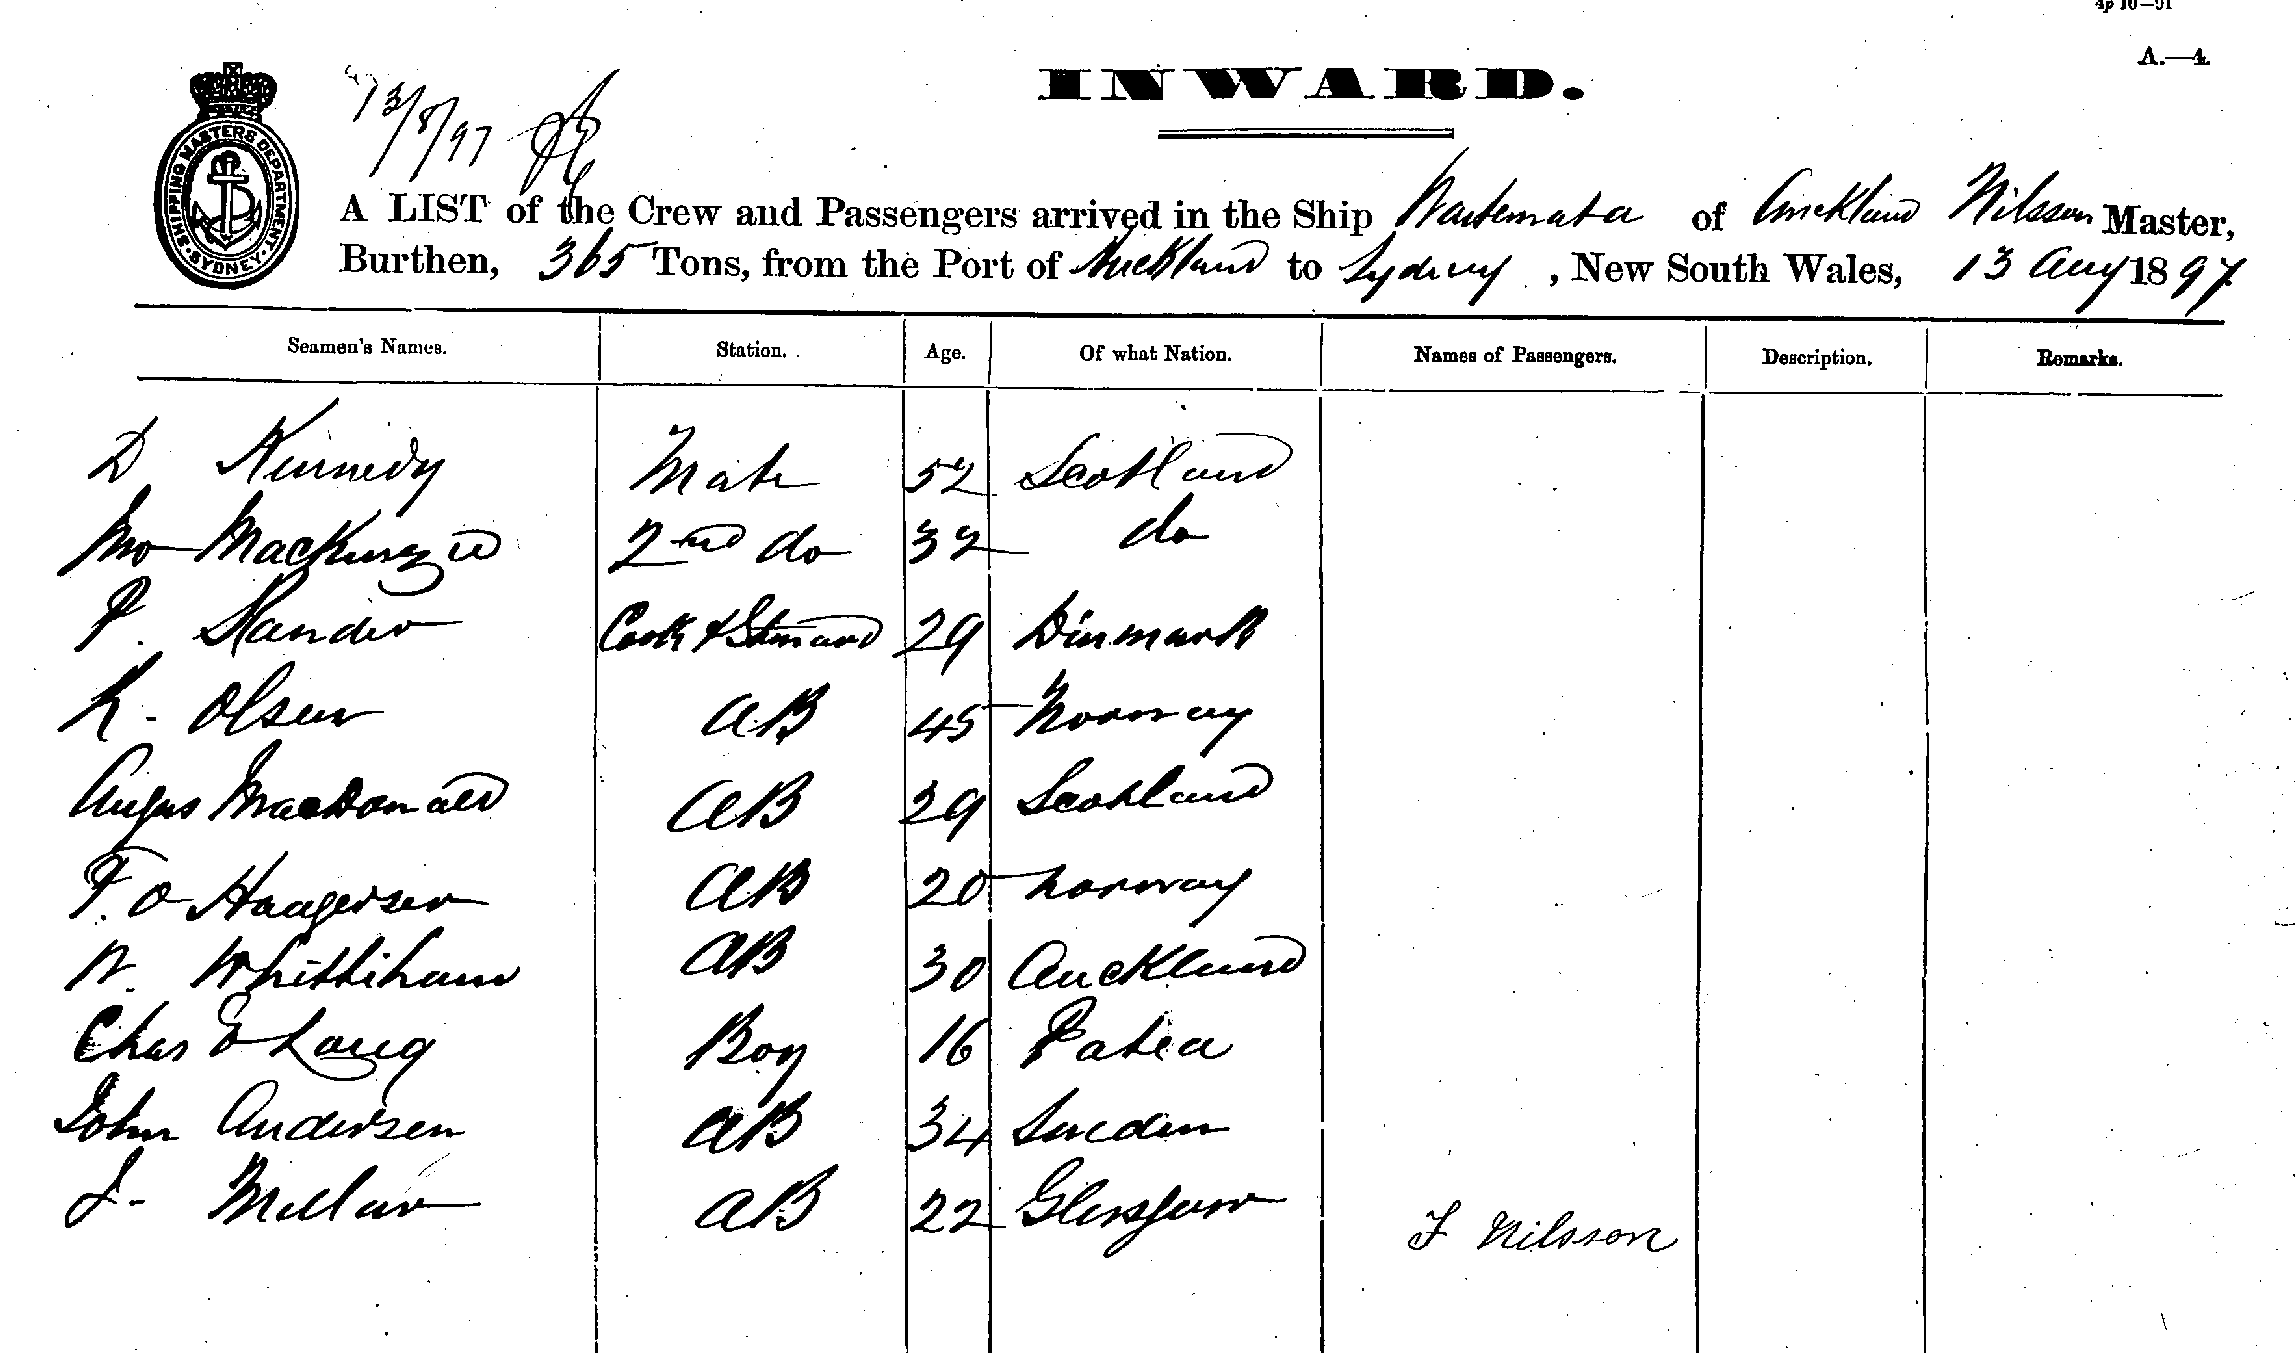 4p 10—91
A.—4.
INWARD.
13/8/97
SHIPPING MASTERS DEPARTMENT · SYDNEY ·
A LIST of the Crew and Passengers arrived in the Ship Waitemata of Auckland Nilsson Master,
Burthen, 365 Tons, from the Port of Auckland to Sydney, New South Wales, 13 Aug 1897
Seamen's Names. Station. Age. Of what Nation. Names of Passengers. Description. Remarks.
D Kennedy Mate 52 Scotland
Mackenzie 2nd do 32 do
P. Cook & Steward 29 Dinmark
K. Olsen AB 45 Norway
Angus MacDonald AB 29 Scotland
F. O Haagensen AB 20 Norway
W. Whittiham AB 30 Auckland
Chas E Long Boy 16 Patea
John Andersen AB 34 Sweden
J. Millar AB 22 Glasgow
F Nilsson